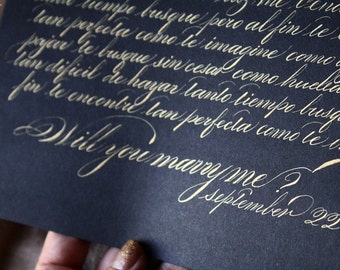 tiempo busque pero al fin te
tan perfecta como te imagine como
te busque sin cesar como huella
tan dificil de hayar tanto tiempo busq
fin te encontre tan perfecta como te i
Will you marry me?
september 22